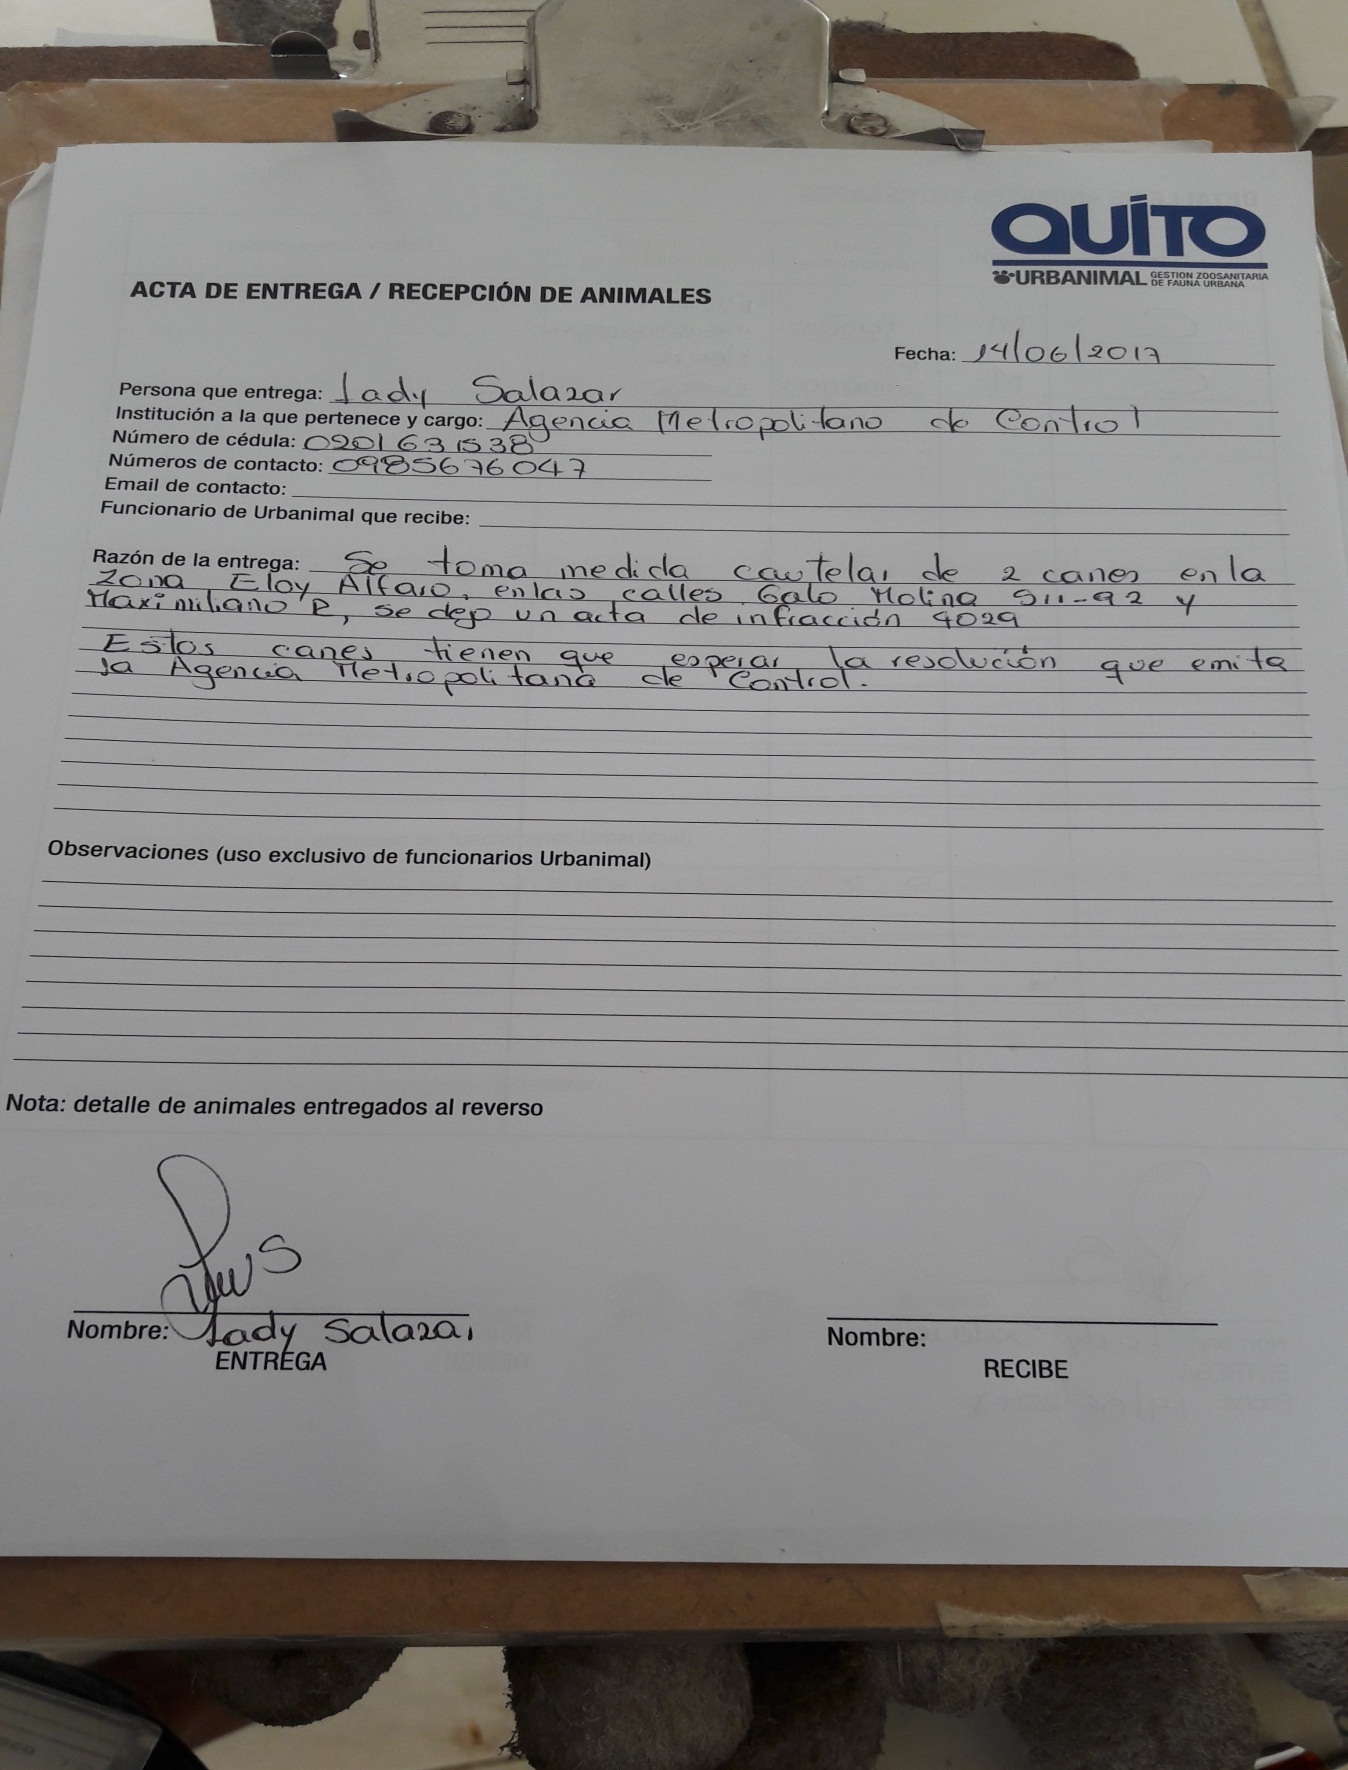 QUITO
URBANIMAL GESTION ZOOSANITARIA DE FAUNA URBANA
ACTA DE ENTREGA / RECEPCIÓN DE ANIMALES
Fecha: 14/06/2017
Persona que entrega: Lady Salazar
Institución a la que pertenece y cargo: Agencia Metropolitano de Control
Número de cédula: 0201631538
Números de contacto: 0985676047
Email de contacto:
Funcionario de Urbanimal que recibe:
Razón de la entrega: Se toma medida cautelar de 2 canes en la
Zona Eloy Alfaro, en las calles Galo Molina S11-92 y
Maximiliano R, se dejo un acta de infracción 4029
Estos canes tienen que esperar la resolución que emita
la Agencia Metropolitana de Control.
Observaciones (uso exclusivo de funcionarios Urbanimal)
Nota: detalle de animales entregados al reverso
Nombre: Lady Salazar
ENTREGA
Nombre:
RECIBE